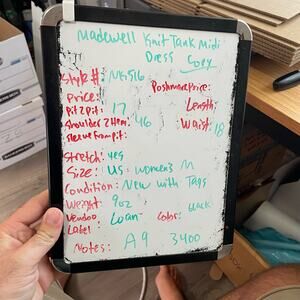 Madewell Knit Tank Midi
Dress Cozy
Style #: NG516
Price: Poshmark Price:
Pit 2 Pit: 17 Length:
Shoulder 2 Hem: 46 Waist: 18
Sleeve from pit:
Stretch: yes
Size: US: women's M
Condition: New with Tags
Weight: 9oz
Vendoo Loan Color: black
Label
Notes: A9 3400